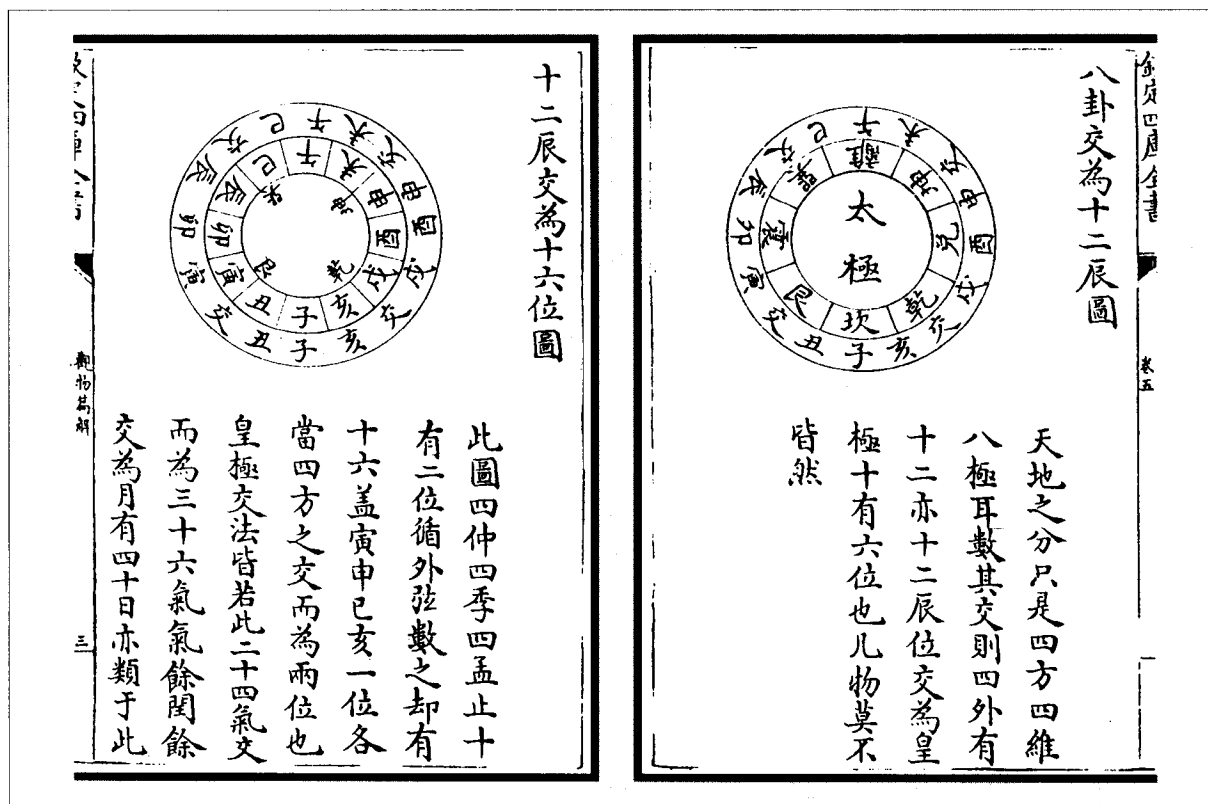 欽定四庫全書
卷五
八卦交為十二辰圖
太極
坎艮震巽離坤兌乾
子丑交寅卯辰交巳午未交申酉戌交亥
天地之分只是四方四維
八極耳數其交則四外有
十二亦十二辰位交為皇
極十有六位也凡物莫不
皆然
十二辰交為十六位圖
艮巽坤乾
子丑寅卯辰巳午未申酉戌亥
子丑交寅卯辰交巳午未交申酉戌交亥
此圖四仲四季四孟止十
有二位循外弦數之却有
十六盖寅申巳亥一位各
當四方之交而為兩位也
皇極交法皆若此二十四氣交
而為三十六氣氣餘閏餘
交為月有四十日亦類于此
欽定四庫全書
觀物篇解
三